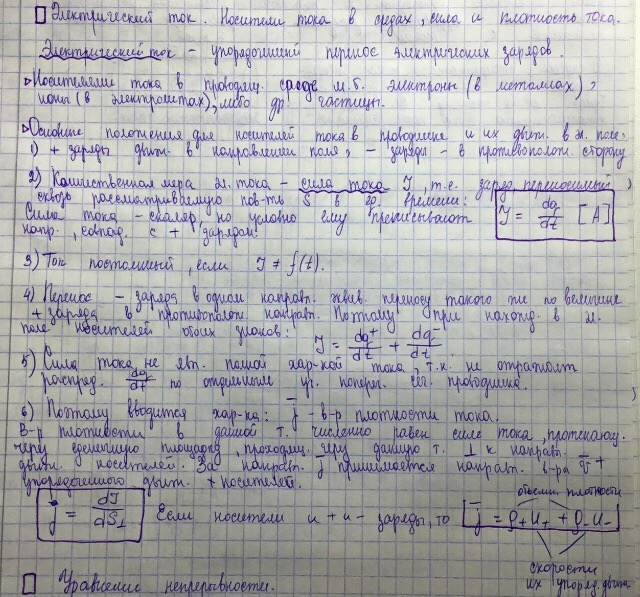 Электрический ток. Носители тока в средах, сила и плотность тока.
Электрический ток – упорядоченный перенос электрических зарядов.
Носителями тока в проводящ. среде м.б. электроны (в металлах),
ионы (в электролитах), либо др. частицы.
Основные положения для носителей тока в проводнике и их движ. в эл. поле:
1) + заряды движ. в направлении поля, – заряды – в противополож. сторону
2) Количественная мера эл. тока – сила тока I, т.е. заряд, переносимый
сквозь рассматриваемую пов-ть S в ед. времени:
I = dq/dt [A]
Сила тока – скаляр, но условно ему приписывают
напр., совпад. с + зарядом.
3) Ток постоянный, если I ≠ f(t).
4) Перенос – заряда в одном направл. эквив. переносу такого же по величине
+ заряда в противополож. направл. Поэтому при нахожд. в эл.
поле носителей обоих знаков: I = dq⁺/dt + dq⁻/dt.
5) Сила тока не явл. полной хар-кой тока, т.к. не отражает
распред. dq/dt по отдельным уч. попереч. сеч. проводника.
6) Поэтому вводится хар-ка: j̄ – в-р плотности тока.
В-р плотности в данной т. численно равен силе тока, протекающ.
через единичную площадку, проходящ. через данную т. ⊥ к направл.
движ. носителей. За направл. j̄ принимается направл. в-ра v̄⁺
упорядоченного движ. + носителей.
объемн. плотности
j = dI/dS⊥ Если носители и + и – заряды, то j̄ = ρ₊u₊ + ρ₋u₋
скорости
их упоряд. движ.
Уравнение непрерывности.